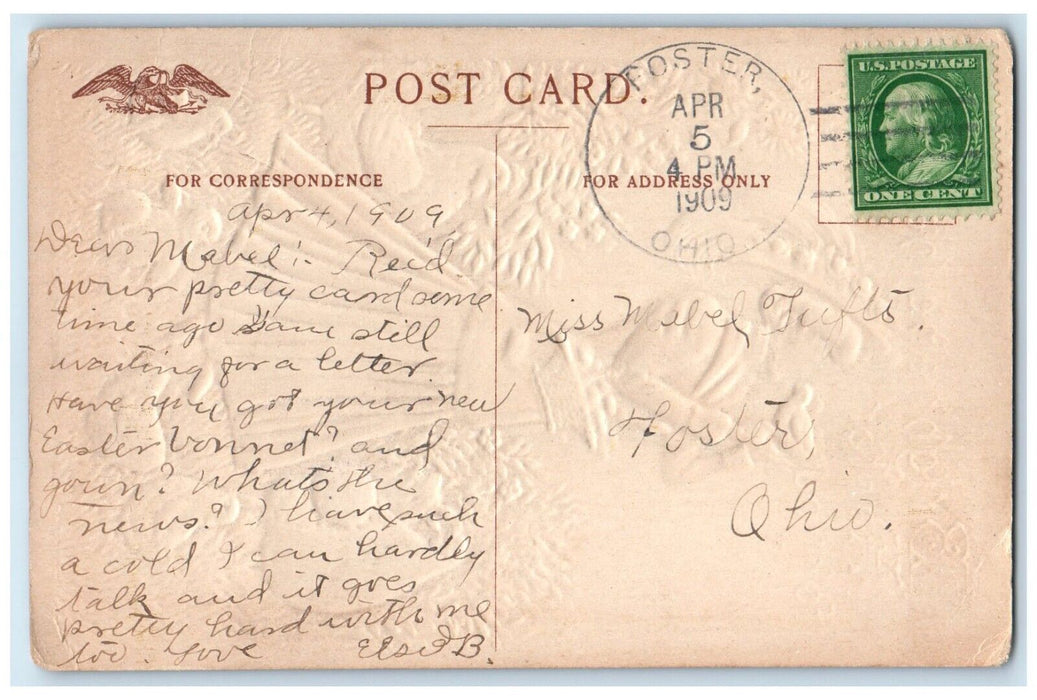 POST CARD.
FOR CORRESPONDENCE
FOR ADDRESS ONLY
FOSTER,
APR
5
4 PM
1909
OHIO
U.S. POSTAGE
ONE CENT
Apr 4, 1909,
Dear Mabel:- Rec'd
your pretty card some
time ago & am still
waiting for a letter.
Have you got your new
Easter bonnet? and
gown? What's the
news? I have such
a cold I can hardly
talk and it goes
pretty hard with me
too. Love
B.
Miss Mabel Tufts.
Foster,
Ohio.